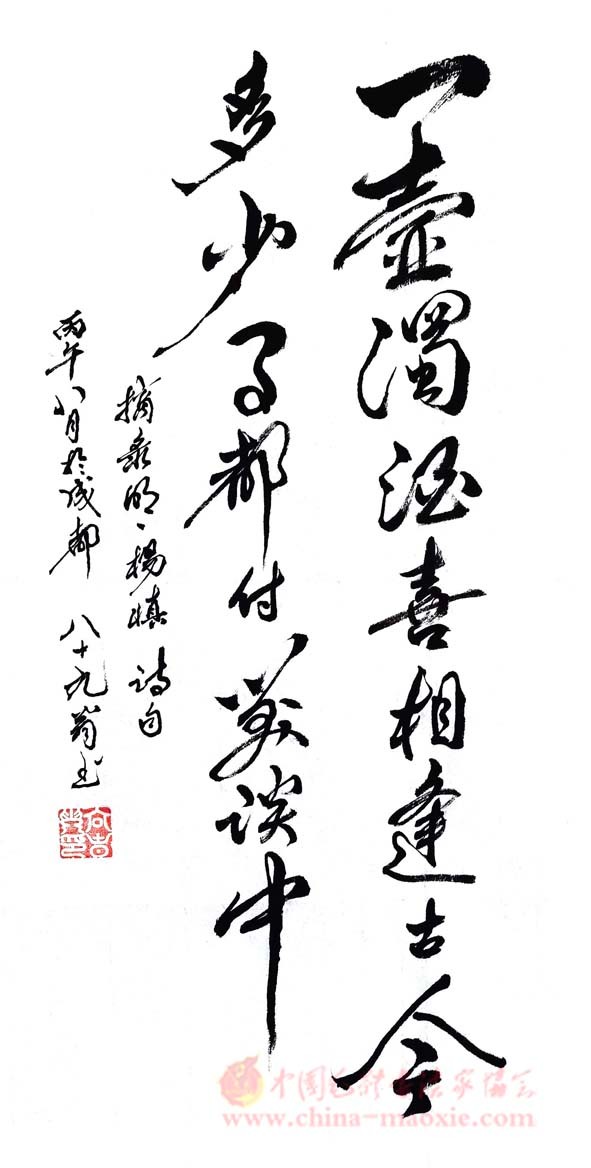 一壶濁酒喜相逢古今
多少事都付笑谈中
摘录明、楊慎诗句
丙午八月於成都 八十九翁书
中国毛体书法家協会
www.china-maoxie.com